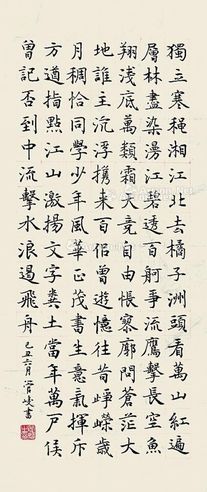 獨立寒穐湘江北去橘子洲頭看萬山紅遍
層林盡染漫江碧透百舸爭流鷹擊長空魚
翔淺底萬類霜天競自由悵寥廓問蒼茫大
地誰主沉浮携來百侶曾遊憶往昔崢嶸歲
月稠恰同學少年風華正茂書生意氣揮斥
方遒指點江山激揚文字糞土當年萬戶侯
曾記否到中流擊水浪遏飛舟
己丑六月書